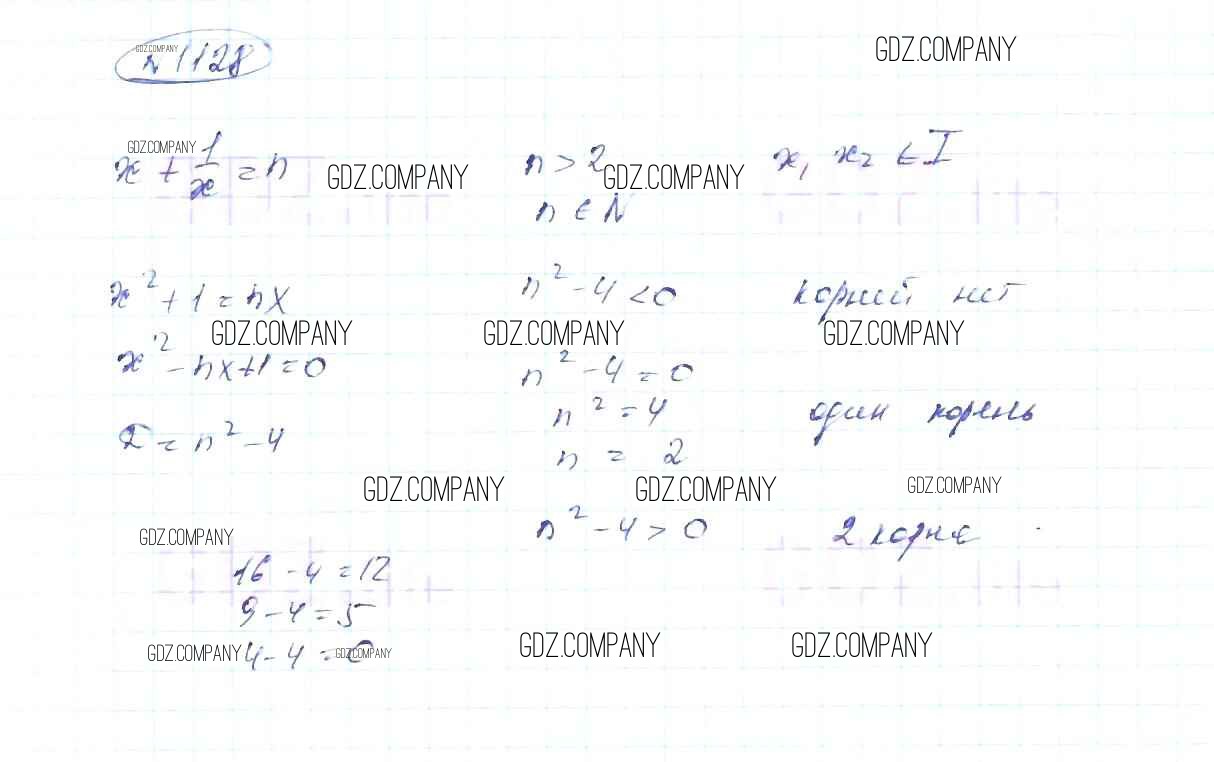 №1128
GDZ.COMPANY
GDZ.COMPANY
x + 1/x = n
n > 2
x₁ x₂ ∈ I
GDZ.COMPANY
GDZ.COMPANY
GDZ.COMPANY
n ∈ N
x² + 1 = nx
n² - 4 < 0
корней нет
GDZ.COMPANY
GDZ.COMPANY
GDZ.COMPANY
x² - nx + 1 = 0
n² - 4 = 0
n² = 4
один корень
D = n² - 4
n = 2
GDZ.COMPANY
GDZ.COMPANY
GDZ.COMPANY
n² - 4 > 0
2 корня
GDZ.COMPANY
16 - 4 = 12
9 - 4 = 5
4 - 4 = 0
GDZ.COMPANY
GDZ.COMPANY
GDZ.COMPANY
GDZ.COMPANY